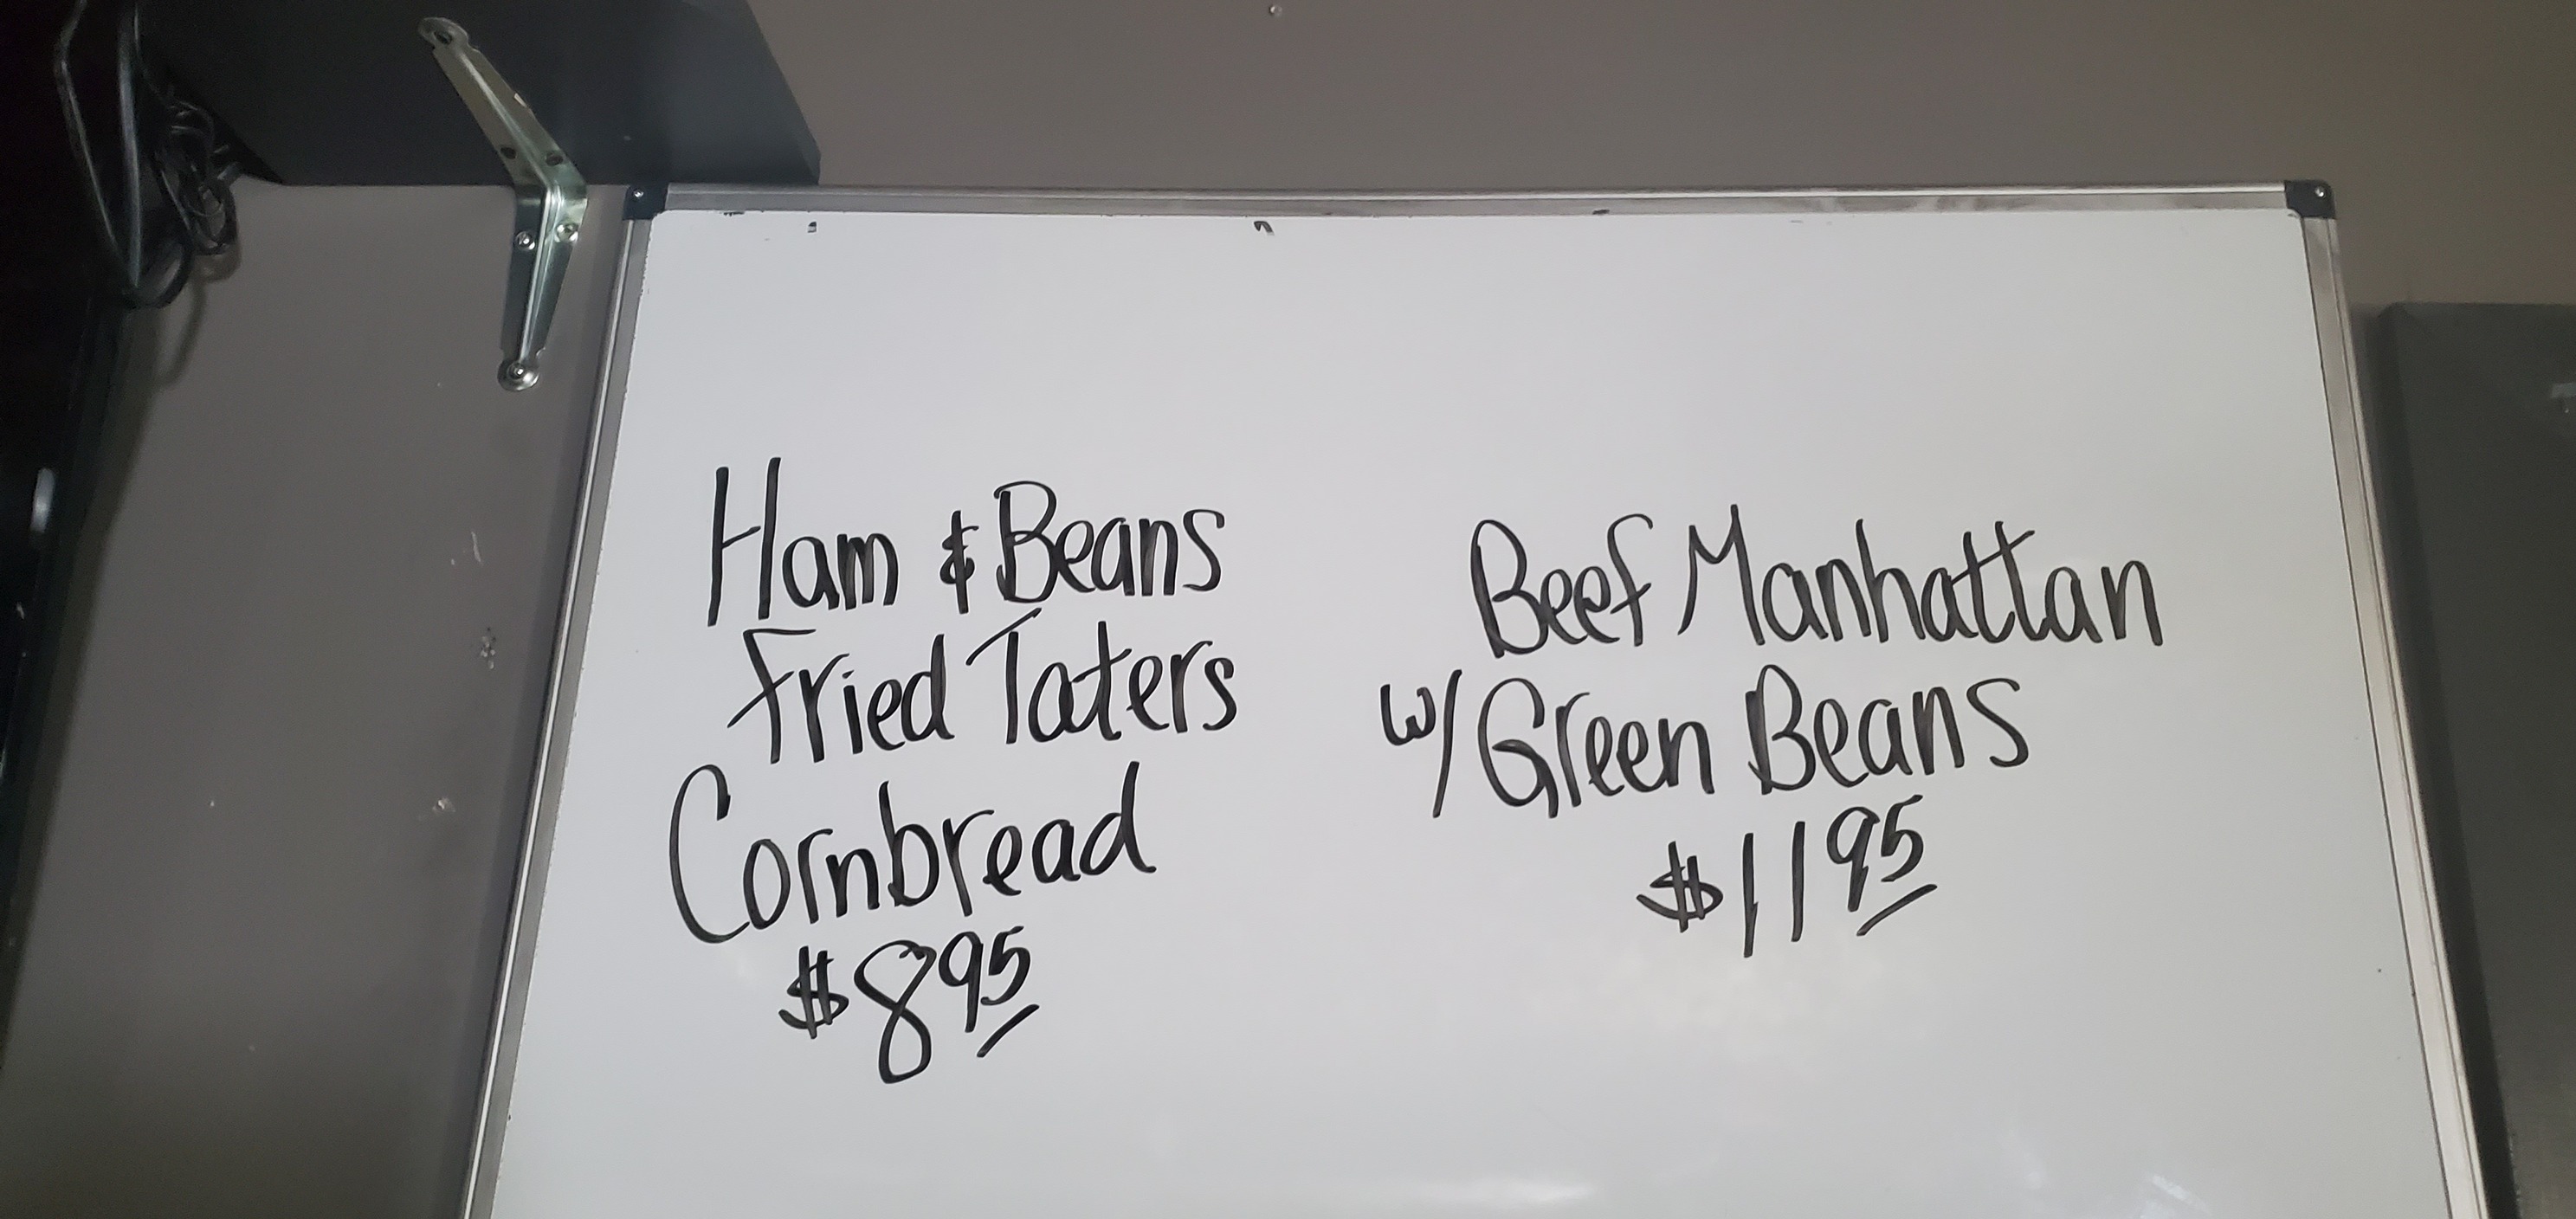 Ham & Beans
Fried Taters
Cornbread
$8 95
Beef Manhattan
w/ Green Beans
$11 95